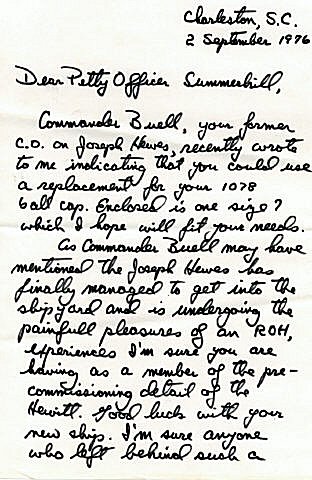 Charleston, S.C.
2 September 1976
Dear Petty Officer Summerhill,
Commander Buell, your former
C.O. on Joseph Hewes, recently wrote
to me indicating that you could use
a replacement for your 1078
ball cap. Enclosed is one size 7
which I hope will fit your needs.
As Commander Buell may have
mentioned the Joseph Hewes has
finally managed to get into the
shipyard and is undergoing the
painfull pleasures of an ROH,
experiences I'm sure you are
having as a member of the pre-
commissioning detail of the
Hewitt. Good luck with your
new ship. I'm sure anyone
who left behind such a